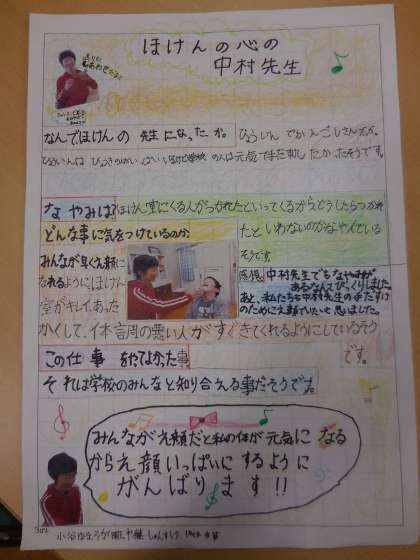 ほけんの心の
中村先生
なんでほけんの先生になったか。
なやみは
ほけん室にくる人がつかれたといってくるからどうしたらつかれ
たといわないのかなやんでいる
そうです
どんな事に気をつけているのか。
みんなが早くえ顔に
なれるようにほけん
室がキレイ、あった
かくして、体調の悪い人がすぐきてくれるようにしているそう
です。
感想。中村先生でもなやみが
あるなんてびっくりしました。
あと、私たちも中村先生の手だすけ
のために
思いました。
この仕事をやってよかった事
それは学校のみんなと知り合える事だそうです。
みんながえ顔だと私の体が元気になる
からえ顔いっぱいにするように
がんばります!!